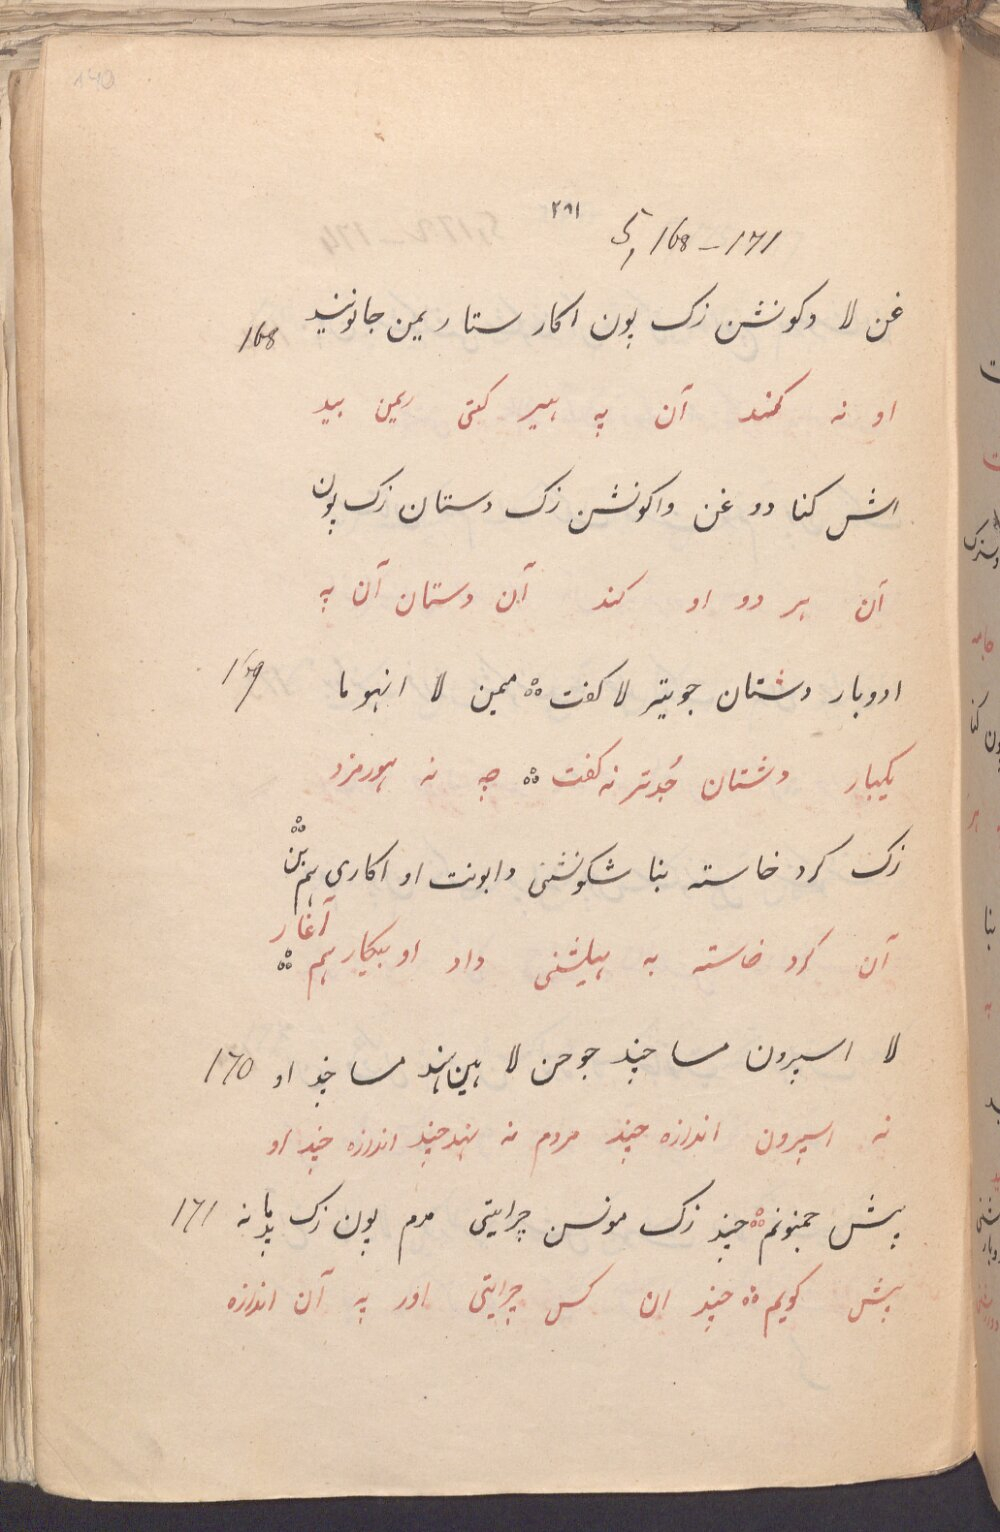 140
۲۹۱
168-171
غن لا وکونشن زک پون اکار ستا ریمن جانونیند 168
او نه کمند آن په هیر کتی ریمن بید
اش کنا دو غن واکونشن زک دستان زک پون
آن هر دو او کند آن دستان آن په
ادوبار دشتان جویتر لا کفت ممین لا انهوما 169
یکبار دشتان جُدتر نه کفت چه نه هورمزد
زک کرد خاسته بنا شکونشنی دابونت او اکاری هم بن
آن کرد خاسته به هیلشنی داد او بیکار هم آغار
لا اسپرون مسا چند جوحن لا هین اند مسا چند او 170
نه اسپرون اندازه چند مردم نه بند چند اندازه چند او
پیش جمنونم چند زک مونسن چرایتی مدم پون زک پدمانه 171
پیش کویم چند ان کس چرایتی اور په آن اندازه